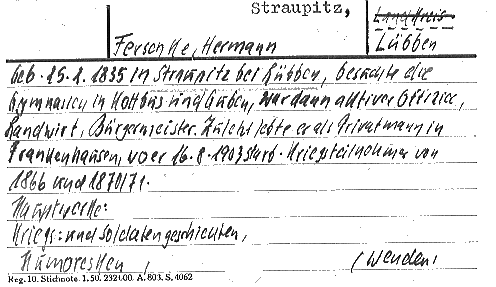 Straupitz,
Landkreis
Lübben
Ferschke, Hermann
geb. 25.2.1835 in Straupitz bei Lübben, besuchte die
Gymnasien in Kottbus und Guben, war dann aktiver Offizier,
Landwirt, Bürgermeister. Zuletzt lebte er als Privatmann in
Frankenhausen, wo er 16.8.1903 starb. Kriegsteilnehmer von
1866 und 1870/71.
Hauptwerke:
Kriegs- und Soldatengeschichten,
Humoresken,
(wenden)
Reg. 10. Stichnote. 1. 50. 2321.00. A. 803. S. 4062